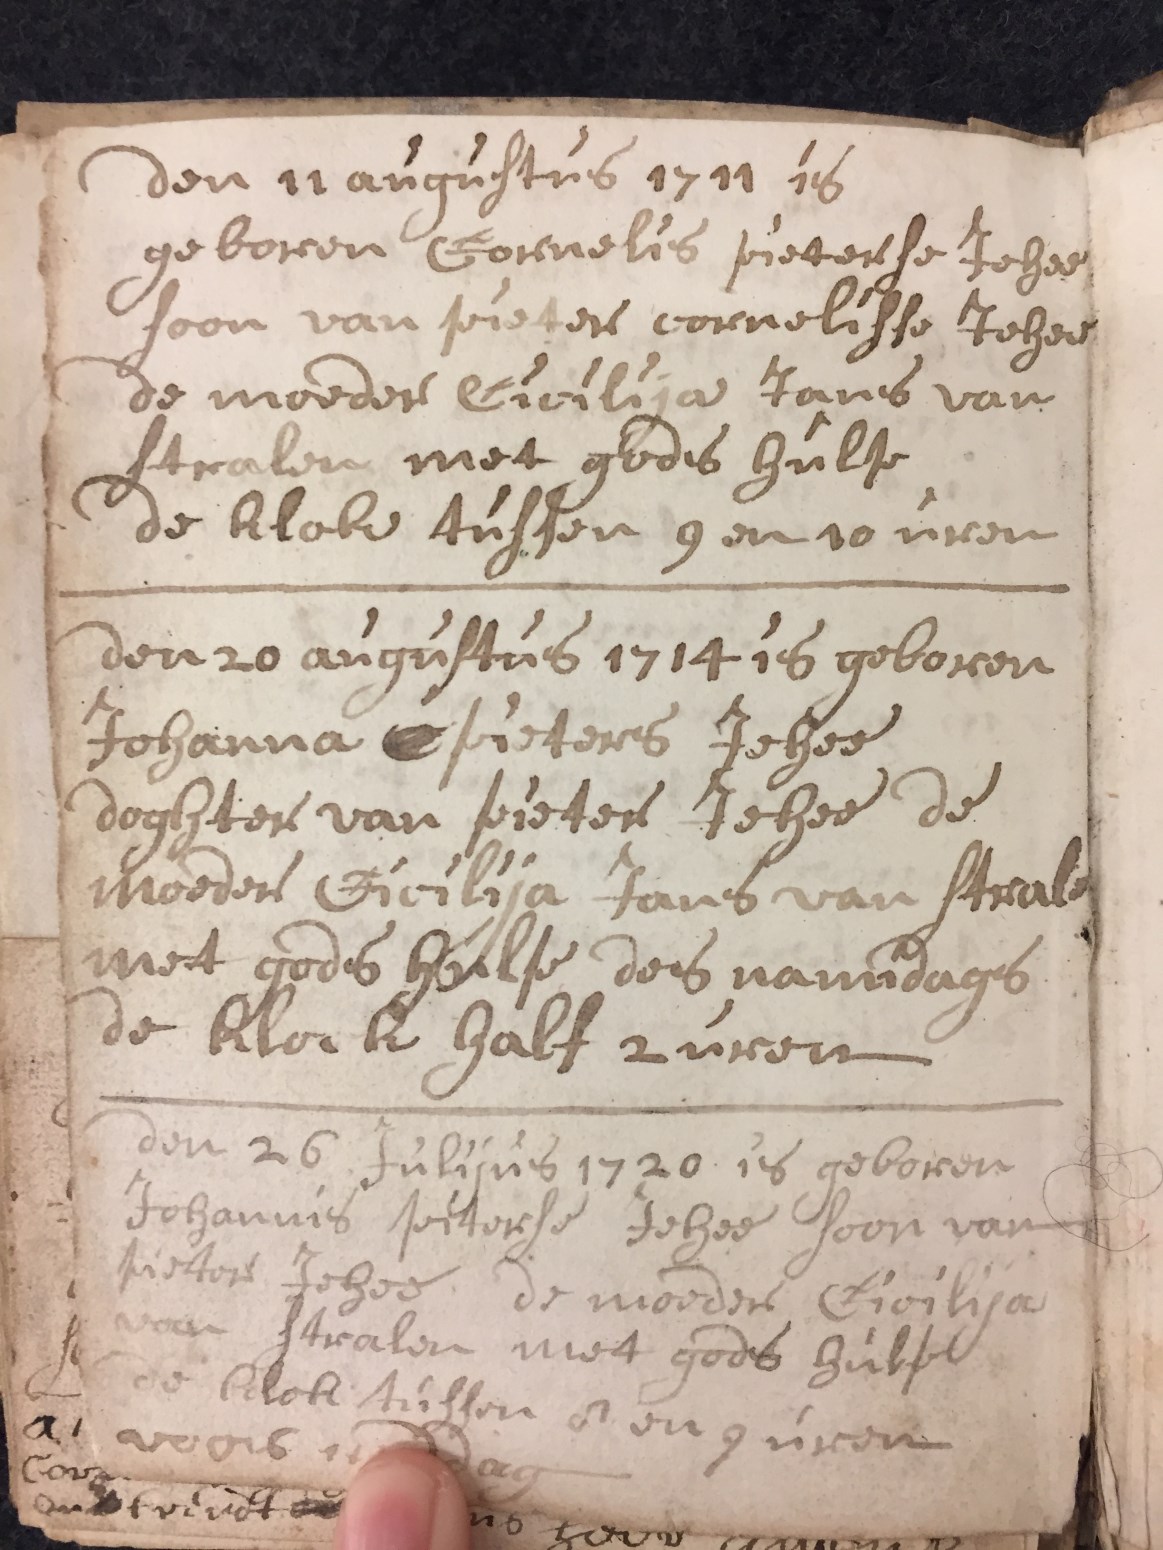 den 11 augustus 1711 is
geboren Cornelis pieterse Jehee
soon van pieter cornelisse Jehee
de moeder Cicilija Jans van
stralen met gods hulpe
de klok tussen 9 en 10 uren
den 20 augustus 1714 is geboren
Johanna pieters Jehee
doghter van pieter Jehee de
moeder Cicilija Jans van strale
met gods hulpe des namidags
de klock half 2 uren
den 26 Julijus 1720 is geboren
Johannis pieterse Jehee soon van
pieter Jehee de moeder Cicilija
van stralen met gods hulpe
de klok tussen 8 en 9 uren
dag